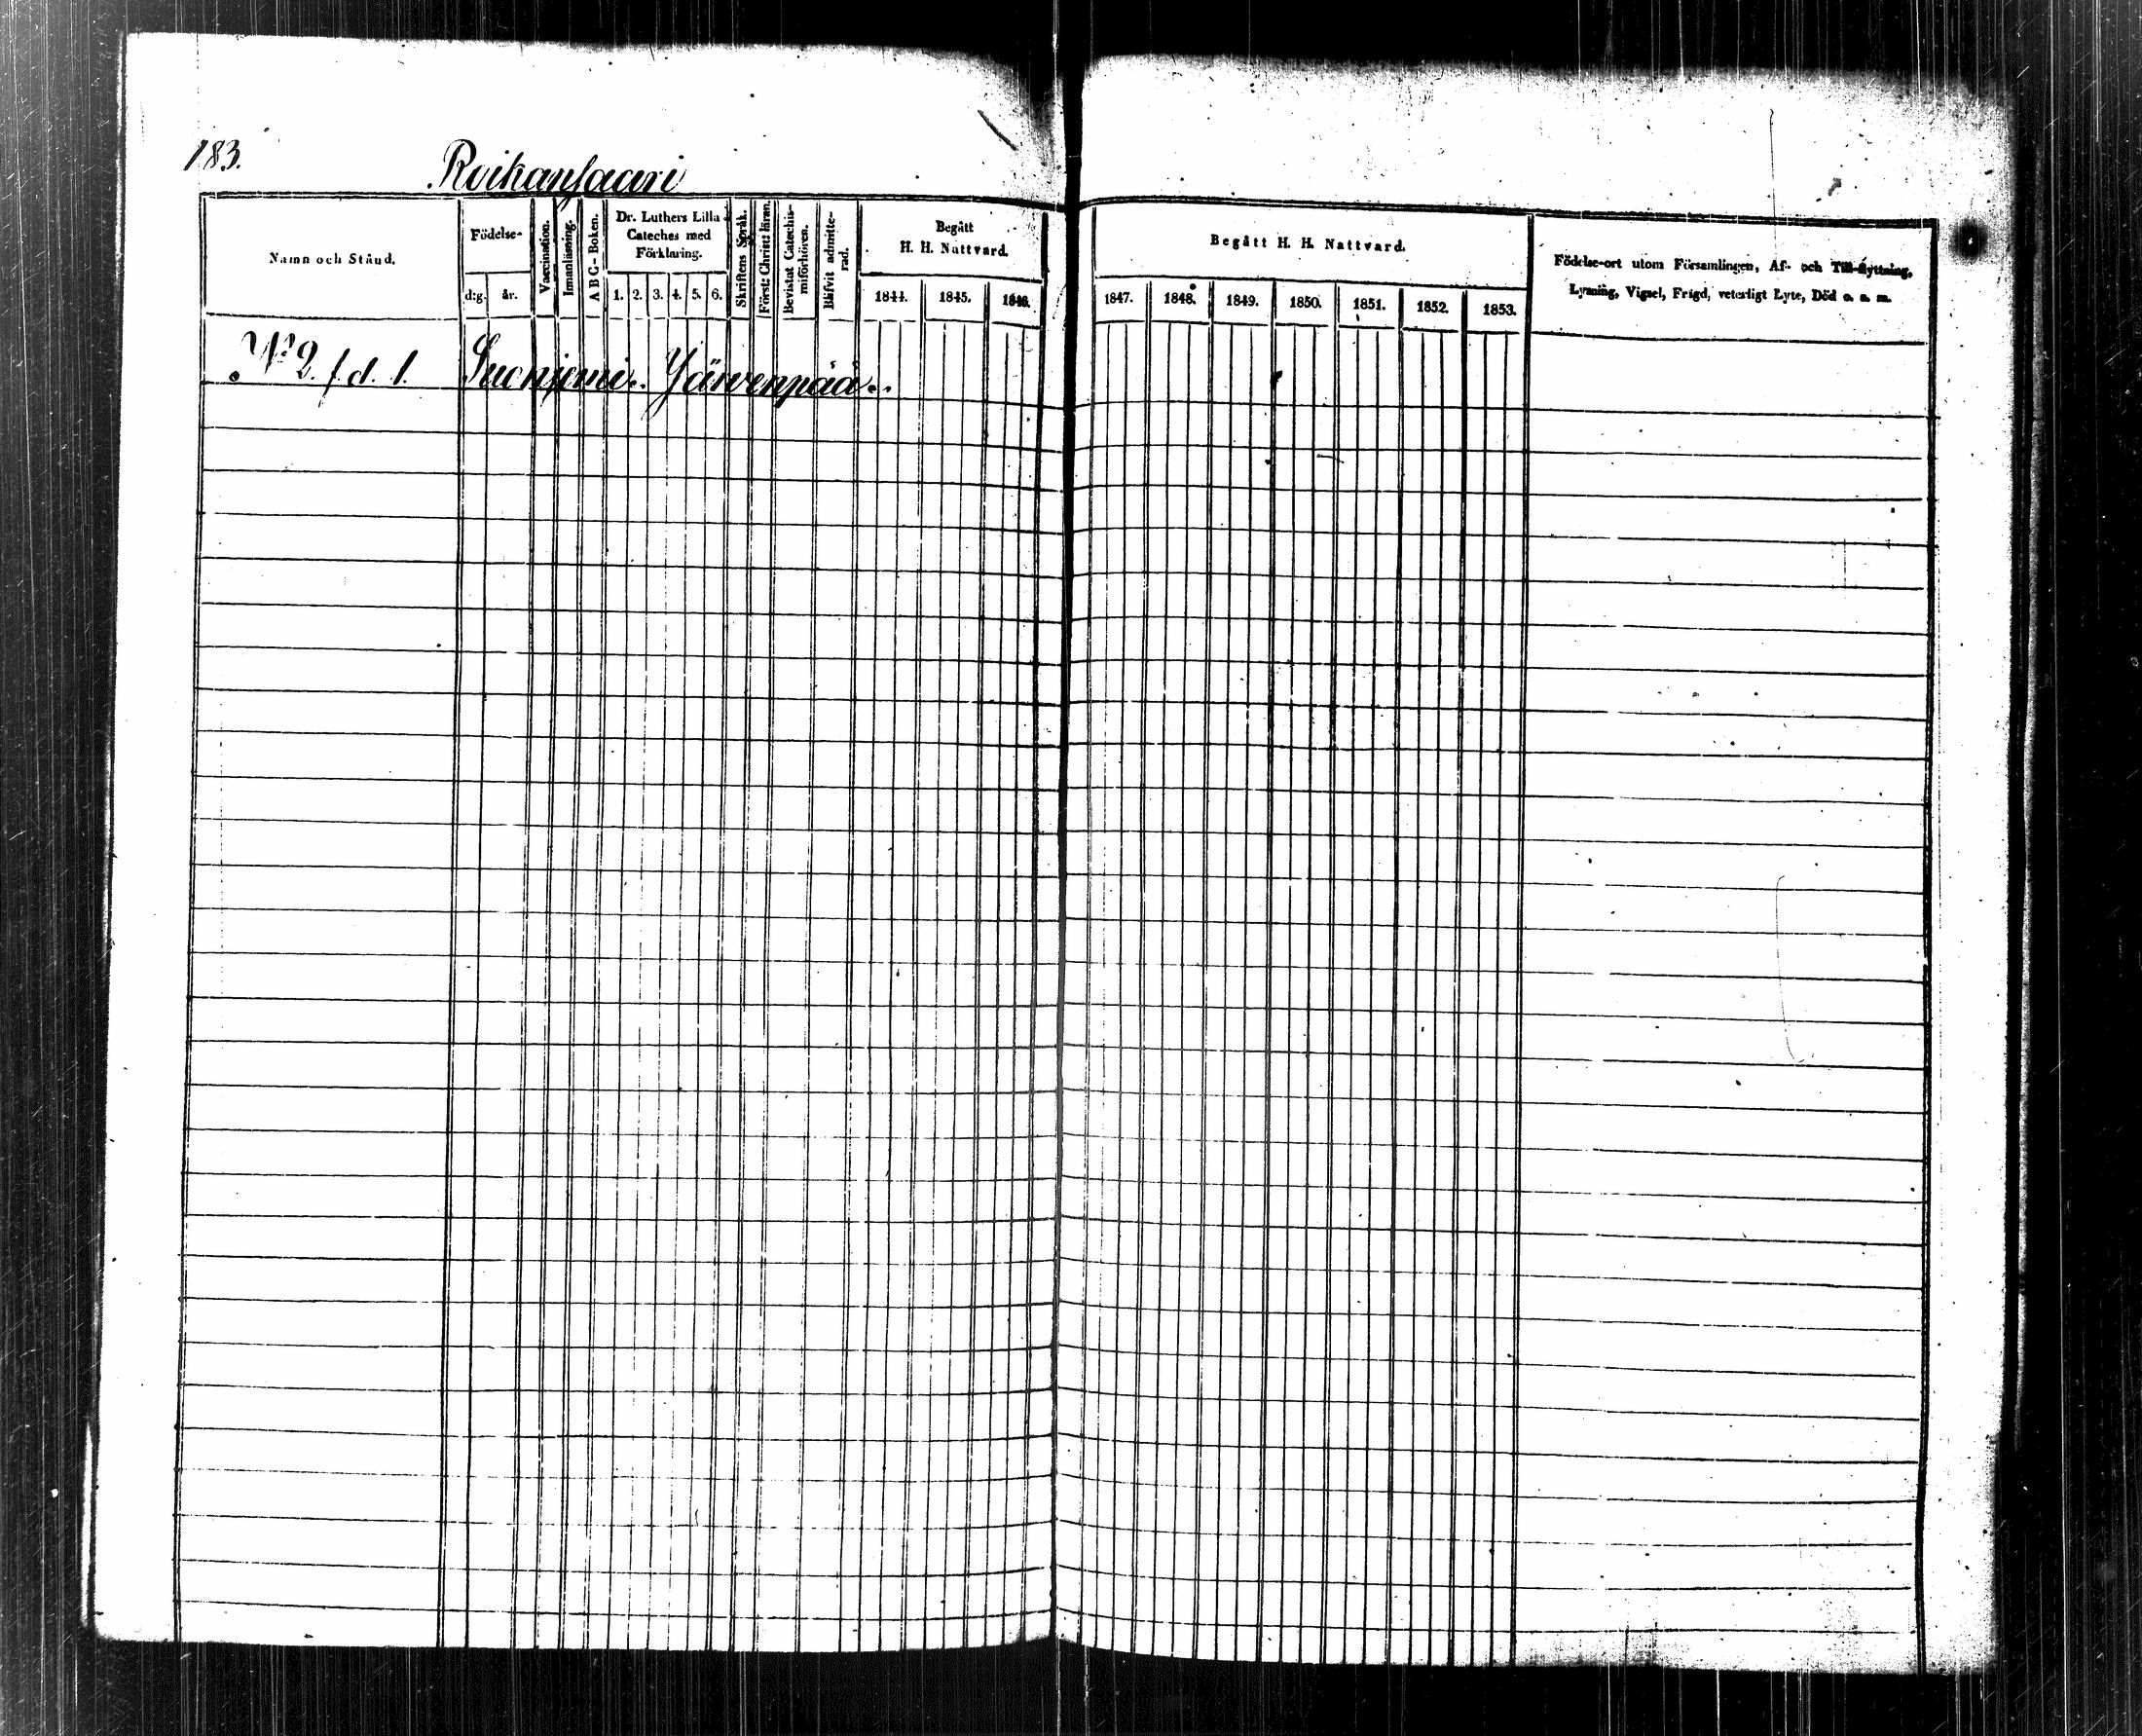 183.
Roikansaari
Namn och Stånd.
Födelse-
d:g.
år.
Vaccination.
Innanläsning.
ABC-Boken.
Dr. Luthers Lilla
Cateches med
Förklaring.
1. 2. 3. 4. 5. 6.
Skriftens Språk.
Först: Christ: läran.
Bevistat Catechis-
miförhören.
Blifvit admitte-
rad.
Begått
H. H. Nattvard.
1844. 1845. 1846.
Begått H. H. Nattvard.
1847. 1848. 1849. 1850. 1851. 1852. 1853.
Födelse-ort utom Församlingen, Af- och Till-flyttning,
Lysning, Vigsel, Frägd, veterligt Lyte, Död o. a. m.
No 2. f. d. 1. Suoniemi. Järvenpää.